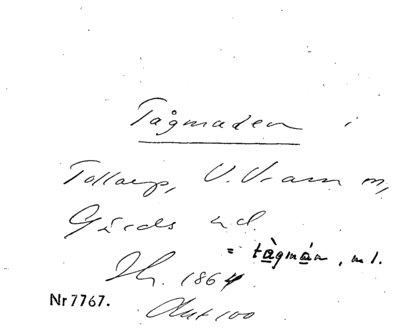 Tågmaden i
Tollarp, V. Vram m,
Gärds hd.
= tàgmán, ml.
Jh. 1864
Nr 7767.